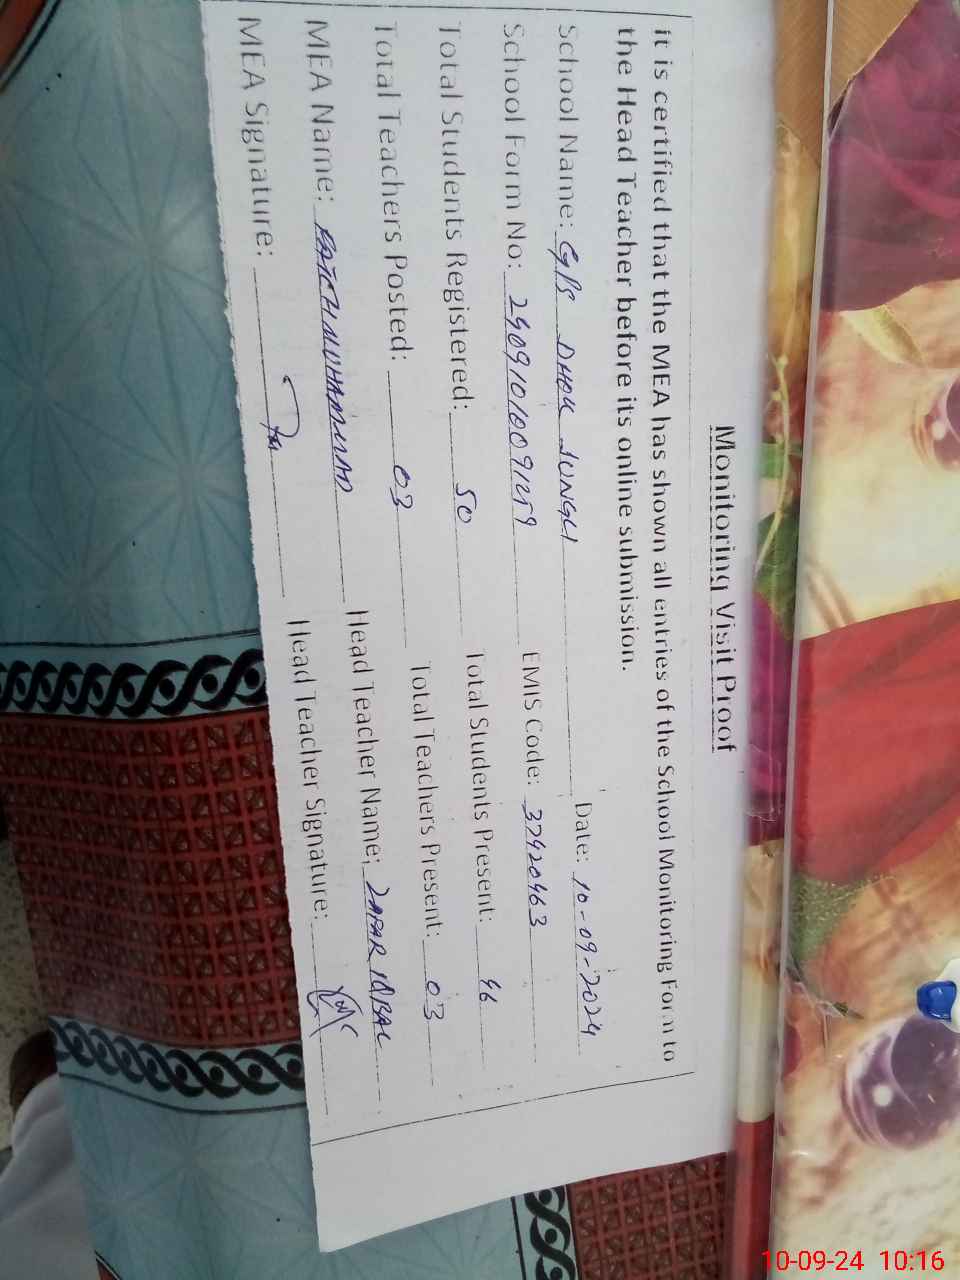 Monitoring Visit Proof
it is certified that the MEA has shown all entries of the School Monitoring Form to
the Head Teacher before its online submission.
School Name: GPS DHOK JUNGLI Date: 10-09-2024
School Form No: EMIS Code: 37420463
Total Students Registered: 50 Total Students Present: 46
Total Teachers Posted: 03 Total Teachers Present: 03
MEA Name: FATEH MUHAMMAD Head Teacher Name: ZAFAR IQBAL
MEA Signature: Head Teacher Signature:
10-09-24 10:16